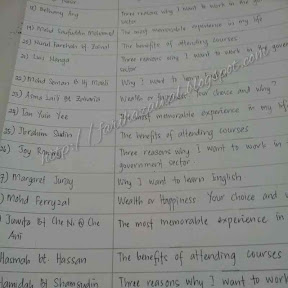 Anthony Jay Three reasons why I want to work in the gov
sector
19) Mohd Saufuddin Mohamad The most memorable experience in my life
20) Nurul Farehah bt Zainol The benefits of attending courses
21) Three reasons why I want to work in the gover
sector.
22) Mohd Senawi B Hj Mohd Why I want to learn
23) Asma Laili Bt Zakaria Wealth or Your choice and why?
24) Tan Yuin Yee The most memorable experience in my life
25) Ibrahim Sudin The benefits of attending courses
26) Joy Three reasons why I want to work in
government sector.
27) Margaret Why I want to learn English
Mohd Ferryzal Wealth or Happiness Your choice and w
Juwita Bt Che Ni @ Che The most memorable experience in
Ani
Hasmah bt. Hassan The benefits of attending courses
Hamidah Bt Shamsudin Three reasons why I want to work